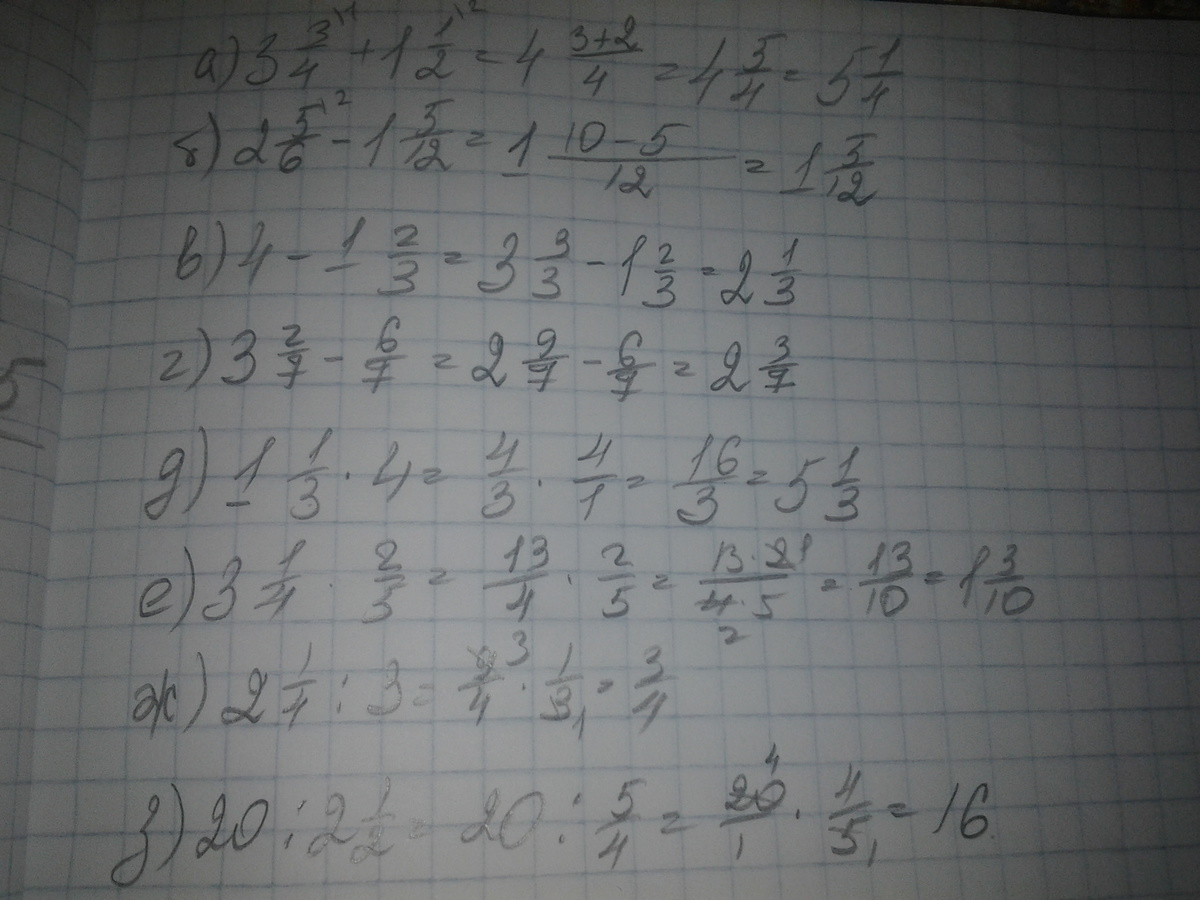 а) 3 3/4 + 1 1/2 = 4 (3+2)/4 = 4 5/4 = 5 1/4
б) 2 5/6 - 1 5/12 = 1 (10-5)/12 = 1 5/12
в) 4 - 1 2/3 = 3 3/3 - 1 2/3 = 2 1/3
г) 3 2/7 - 6/7 = 2 9/7 - 6/7 = 2 3/7
д) 1 1/3 · 4 = 4/3 · 4/1 = 16/3 = 5 1/3
е) 3 1/4 · 2/5 = 13/4 · 2/5 = (13·2)/(4·5) = 13/10 = 1 3/10
ж) 2 1/4 : 3 = 9/4 · 1/3 = 3/4
з) 20 : 2 1/2 = 20 : 5/4 = 20/1 · 4/5 = 16